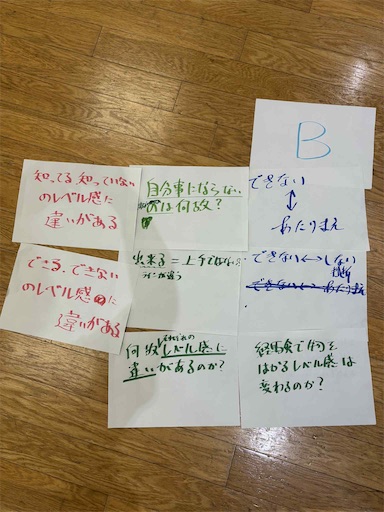 B
知ってる 知っていない
のレベル感に
違いがある
自分事にならない
のは何故?
できない
↕
あたりまえ
できる、できない
のレベル感に
違いがある
出来る=上手ではない?
できない←→しない
できない←→あたりまえ
何故それぞれの
レベル感に
違いがあるのか?
経験で物を
はかるレベル感は
変わるのか?